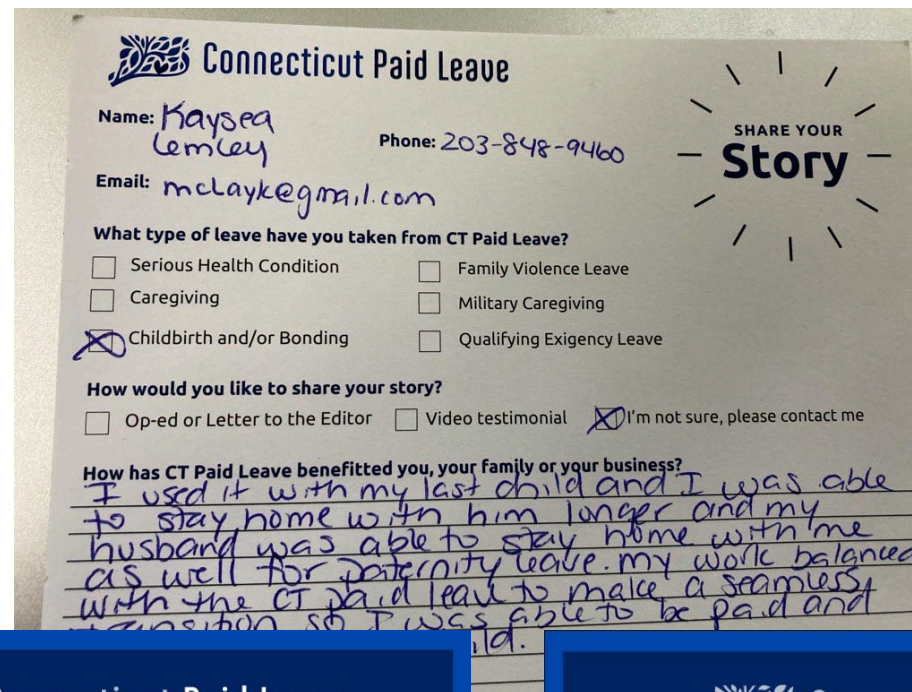 Connecticut Paid Leave
SHARE YOUR
Story
Name: Kaysea
Lemley
Phone: 203-848-9460
Email: mclayk@gmail.com
What type of leave have you taken from CT Paid Leave?
Serious Health Condition
Family Violence Leave
Caregiving
Military Caregiving
Childbirth and/or Bonding
Qualifying Exigency Leave
How would you like to share your story?
Op-ed or Letter to the Editor
Video testimonial
I'm not sure, please contact me
How has CT Paid Leave benefitted you, your family or your business?
I used it with my last child and I was able
to stay home with him longer and my
husband was able to stay home with me
as well for paternity leave. my work balanced
with the CT paid leave to make a seamless
transition so I was able to be paid and